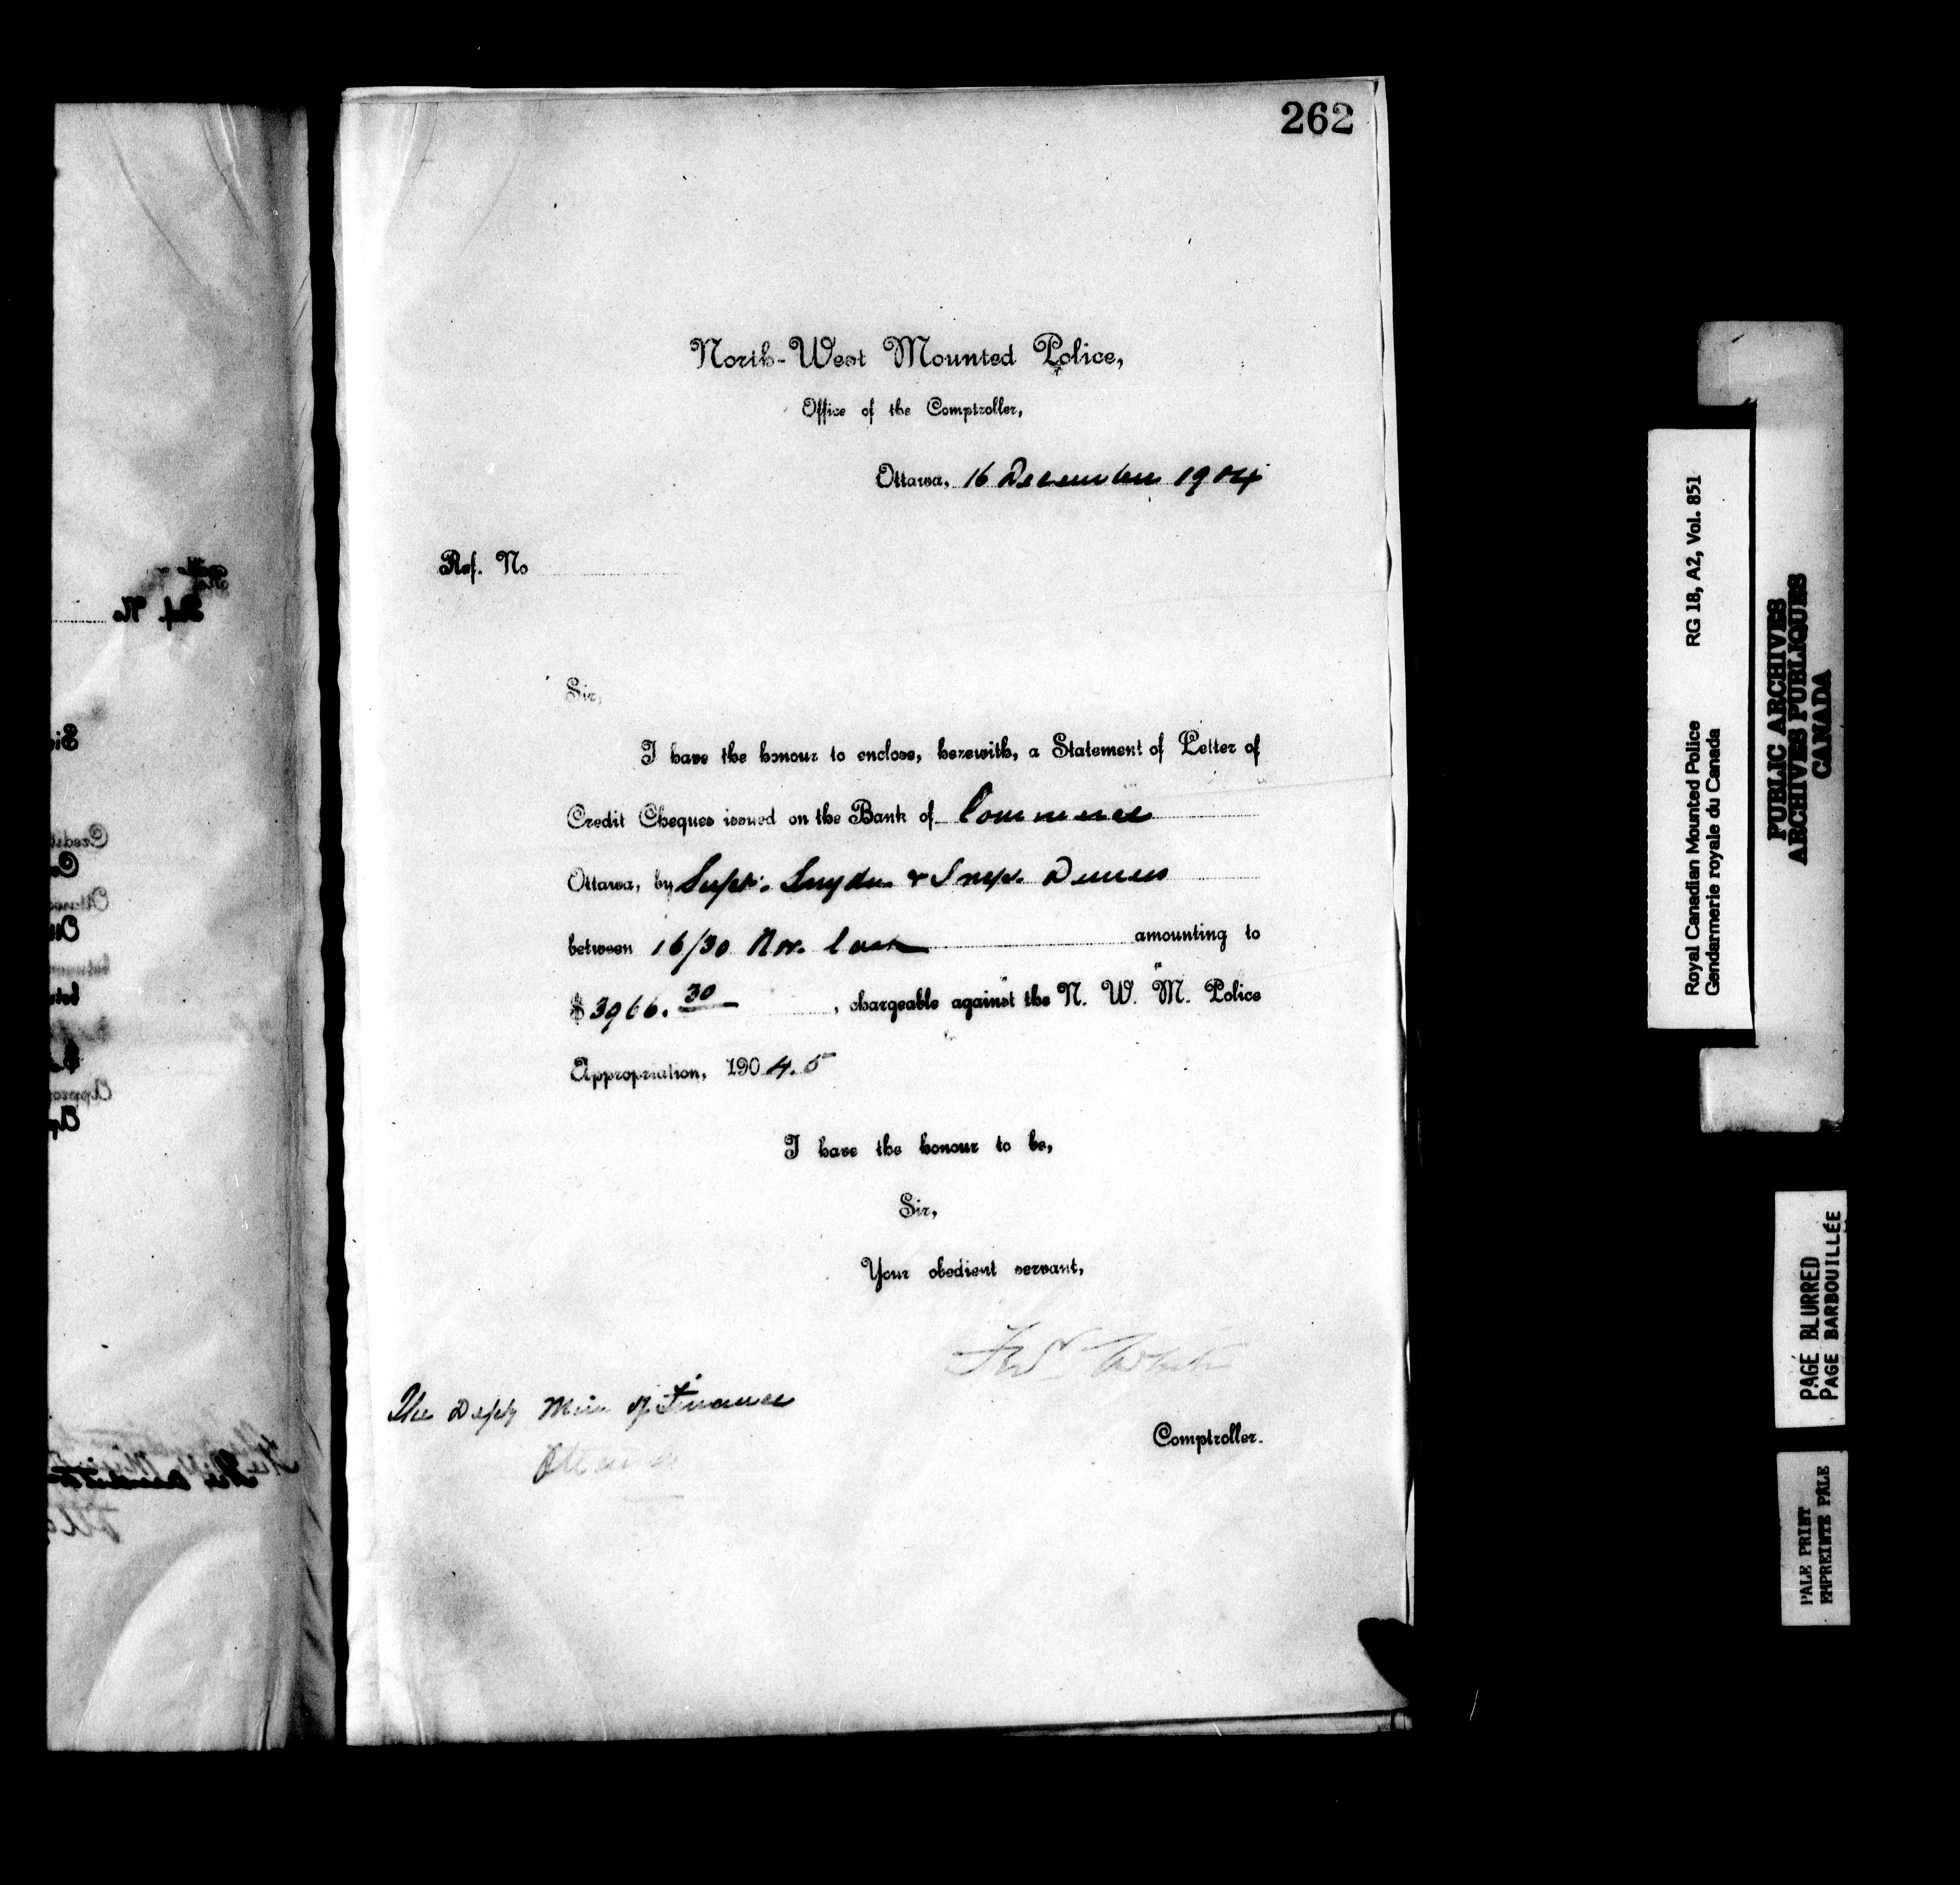 262
North-West Mounted Police,
Office of the Comptroller,
Ottawa, 16 December 1904
Ref. No
Sir,
I have the honour to enclose, herewith, a Statement of Letter of
Credit Cheques issued on the Bank of Commerce
Ottawa, by Supt. Snyder & Insp. Demers
between 16/30 Nov. last amounting to
$3966.30, chargeable against the N. W. M. Police
Appropriation, 1904.5
I have the honour to be,
Sir,
Your obedient servant,
Fred White
Comptroller.
The Depty Min of Finance
Ottawa
Royal Canadian Mounted Police RG 18, A2, Vol. 851
Gendarmerie royale du Canada
PUBLIC ARCHIVES
ARCHIVES PUBLIQUES
CANADA
PAGE BLURRED
PAGE BARBOUILLÉE
PALE PRINT
EMPREINTE PÂLE